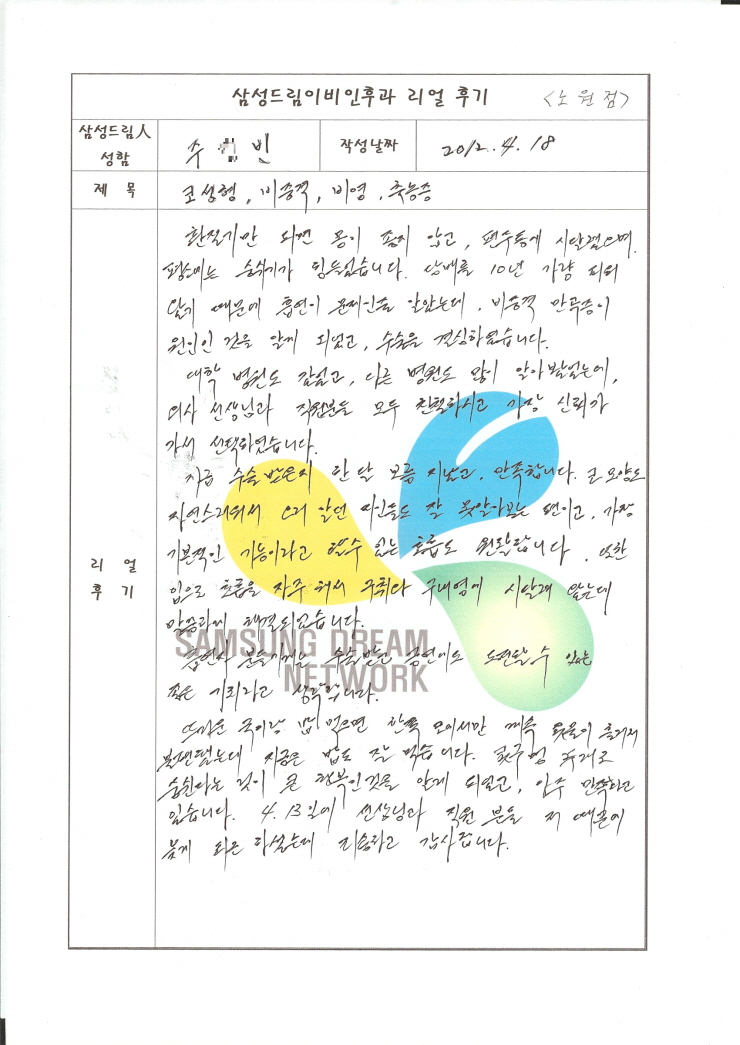 삼성드림이비인후과 리얼 후기 <노원점>
삼성드림人 성함
수 빈
작성날짜
2012. 4. 18
제 목
코성형, 비중격, 비염, 축농증
리 얼 후 기
환절기만 되면 몸이 좋지 않고, 편두통에 시달렸으며,
평소에는 숨쉬기가 힘들었습니다. 담배를 10년 가량 피워
왔기 때문에 흡연이 문제인줄 알았는데, 비중격 만곡증이
원인인 것을 알게 되었고, 수술을 결심하였습니다.
대학 병원도 갔었고, 다른 병원도 많이 알아봤었는데,
의사 선생님과 직원분들 모두 친절하시고 가장 신뢰가
가서 선택하였습니다.
지금 수술 받은지 한 달 보름 지났고, 만족합니다. 코 모양도
자연스러워서 오래 알던 지인들도 잘 못알아보는 편이고, 가장
기본적인 기능이라고 할수 있는 호흡도 원활합니다. 또한
입으로 호흡을 자주 해서 구취와 구내염에 시달려 왔는데
말끔하게 해결되었습니다.
흡연자 분들에게는 수술받고 금연에도 도전할 수 있는
좋은 기회라고 생각합니다.
뜨거운 국이랑 밥 먹으면 한쪽 코에서만 계속 콧물이 흘러서
불편했는데 지금은 밥도 잘 먹습니다. 콧구멍 두개로
숨쉰다는 것이 큰 행복인것을 알게 되었고, 아주 만족하고
있습니다. 4. 13일에 선생님과 직원 분들 저 때문에
늦게 퇴근 하셨는데 죄송하고 감사합니다.
SAMSUNG DREAM
NETWORK